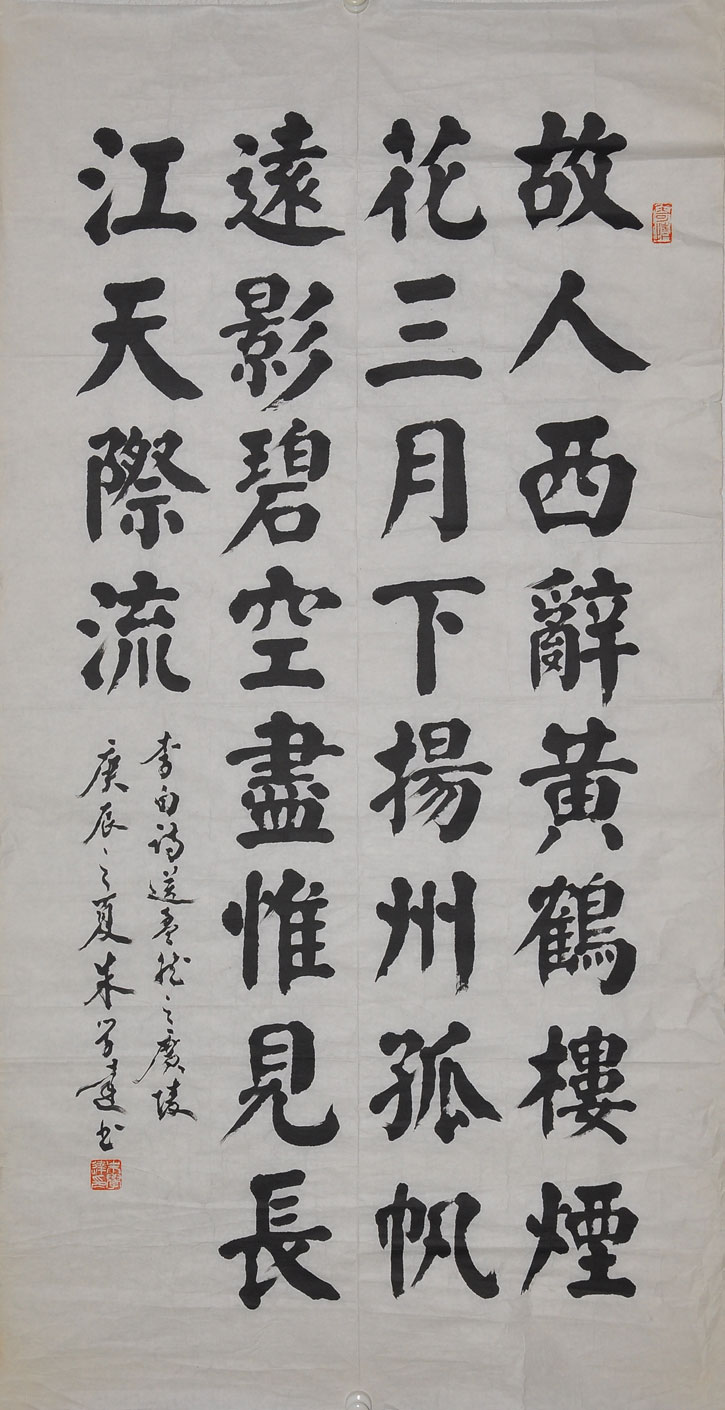 故人西辭黃鶴樓煙
花三月下揚州孤帆
遠影碧空盡惟見長
江天際流
李白詩送孟浩然之廣陵
庚辰之夏朱學達书